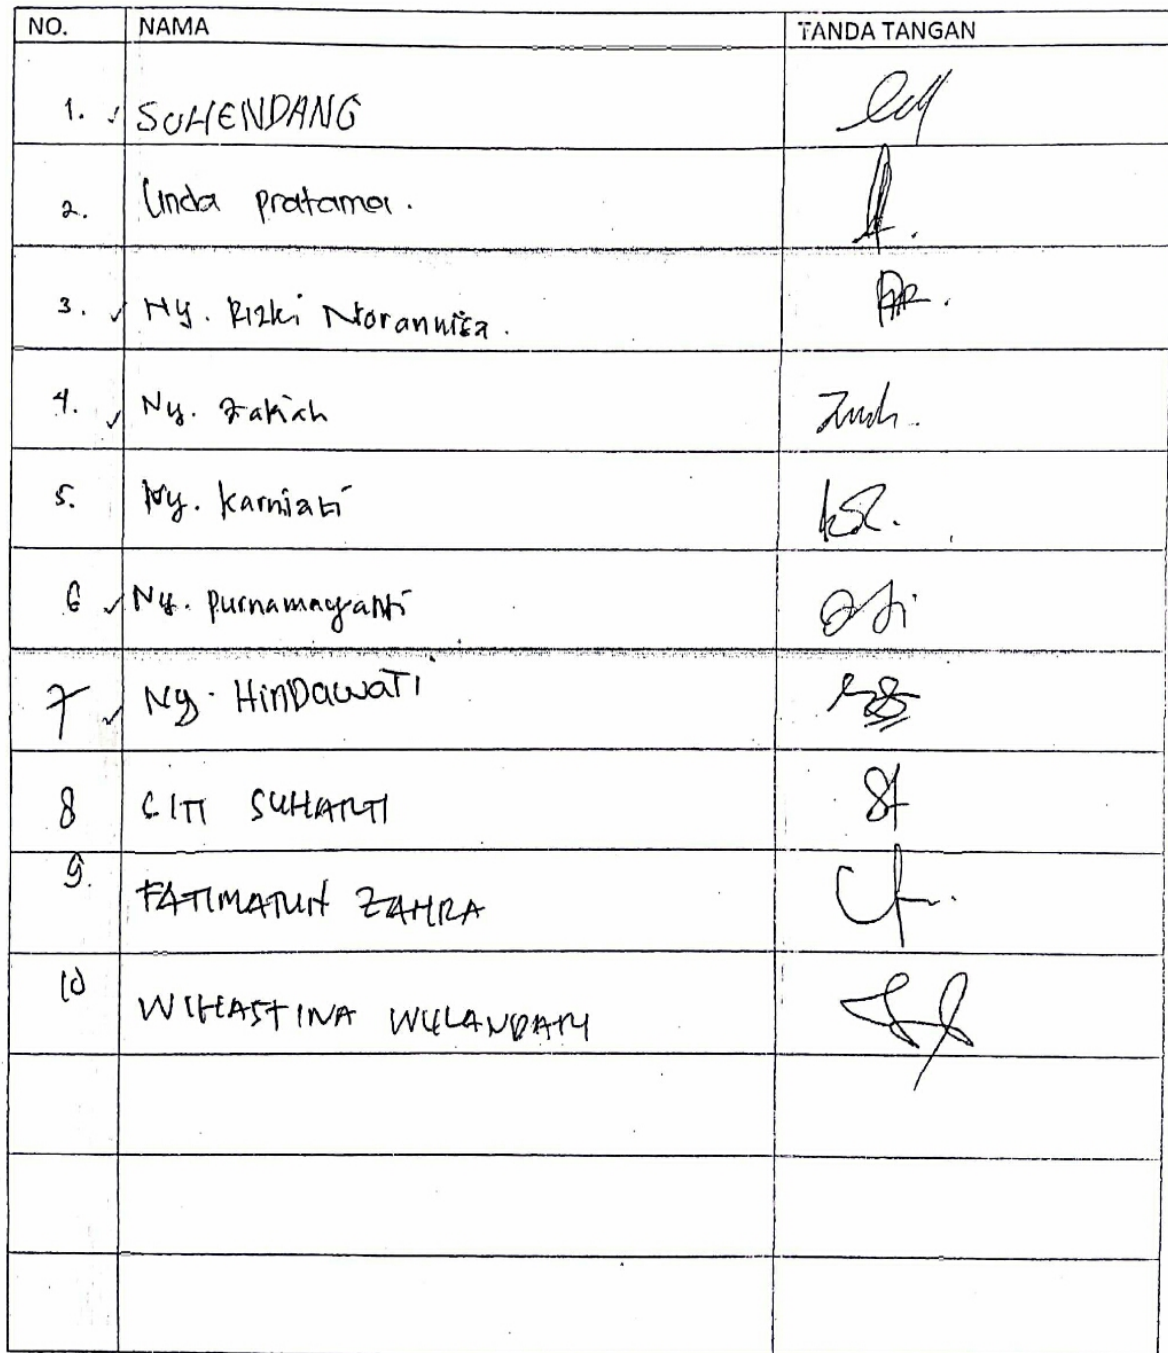 NO. NAMA TANDA TANGAN
1. SUHENDANG
2. Linda pratama.
3. Ny. Rizki Norannisa.
4. Ny. Zakiah
5. Ny. Karniati
6 Ny. purnamayanti
7 Ny. HinDawaTi
8 CITI SUHARTI
9. FATIMATUH ZAHRA
10 WIHASTINA WULANDARI